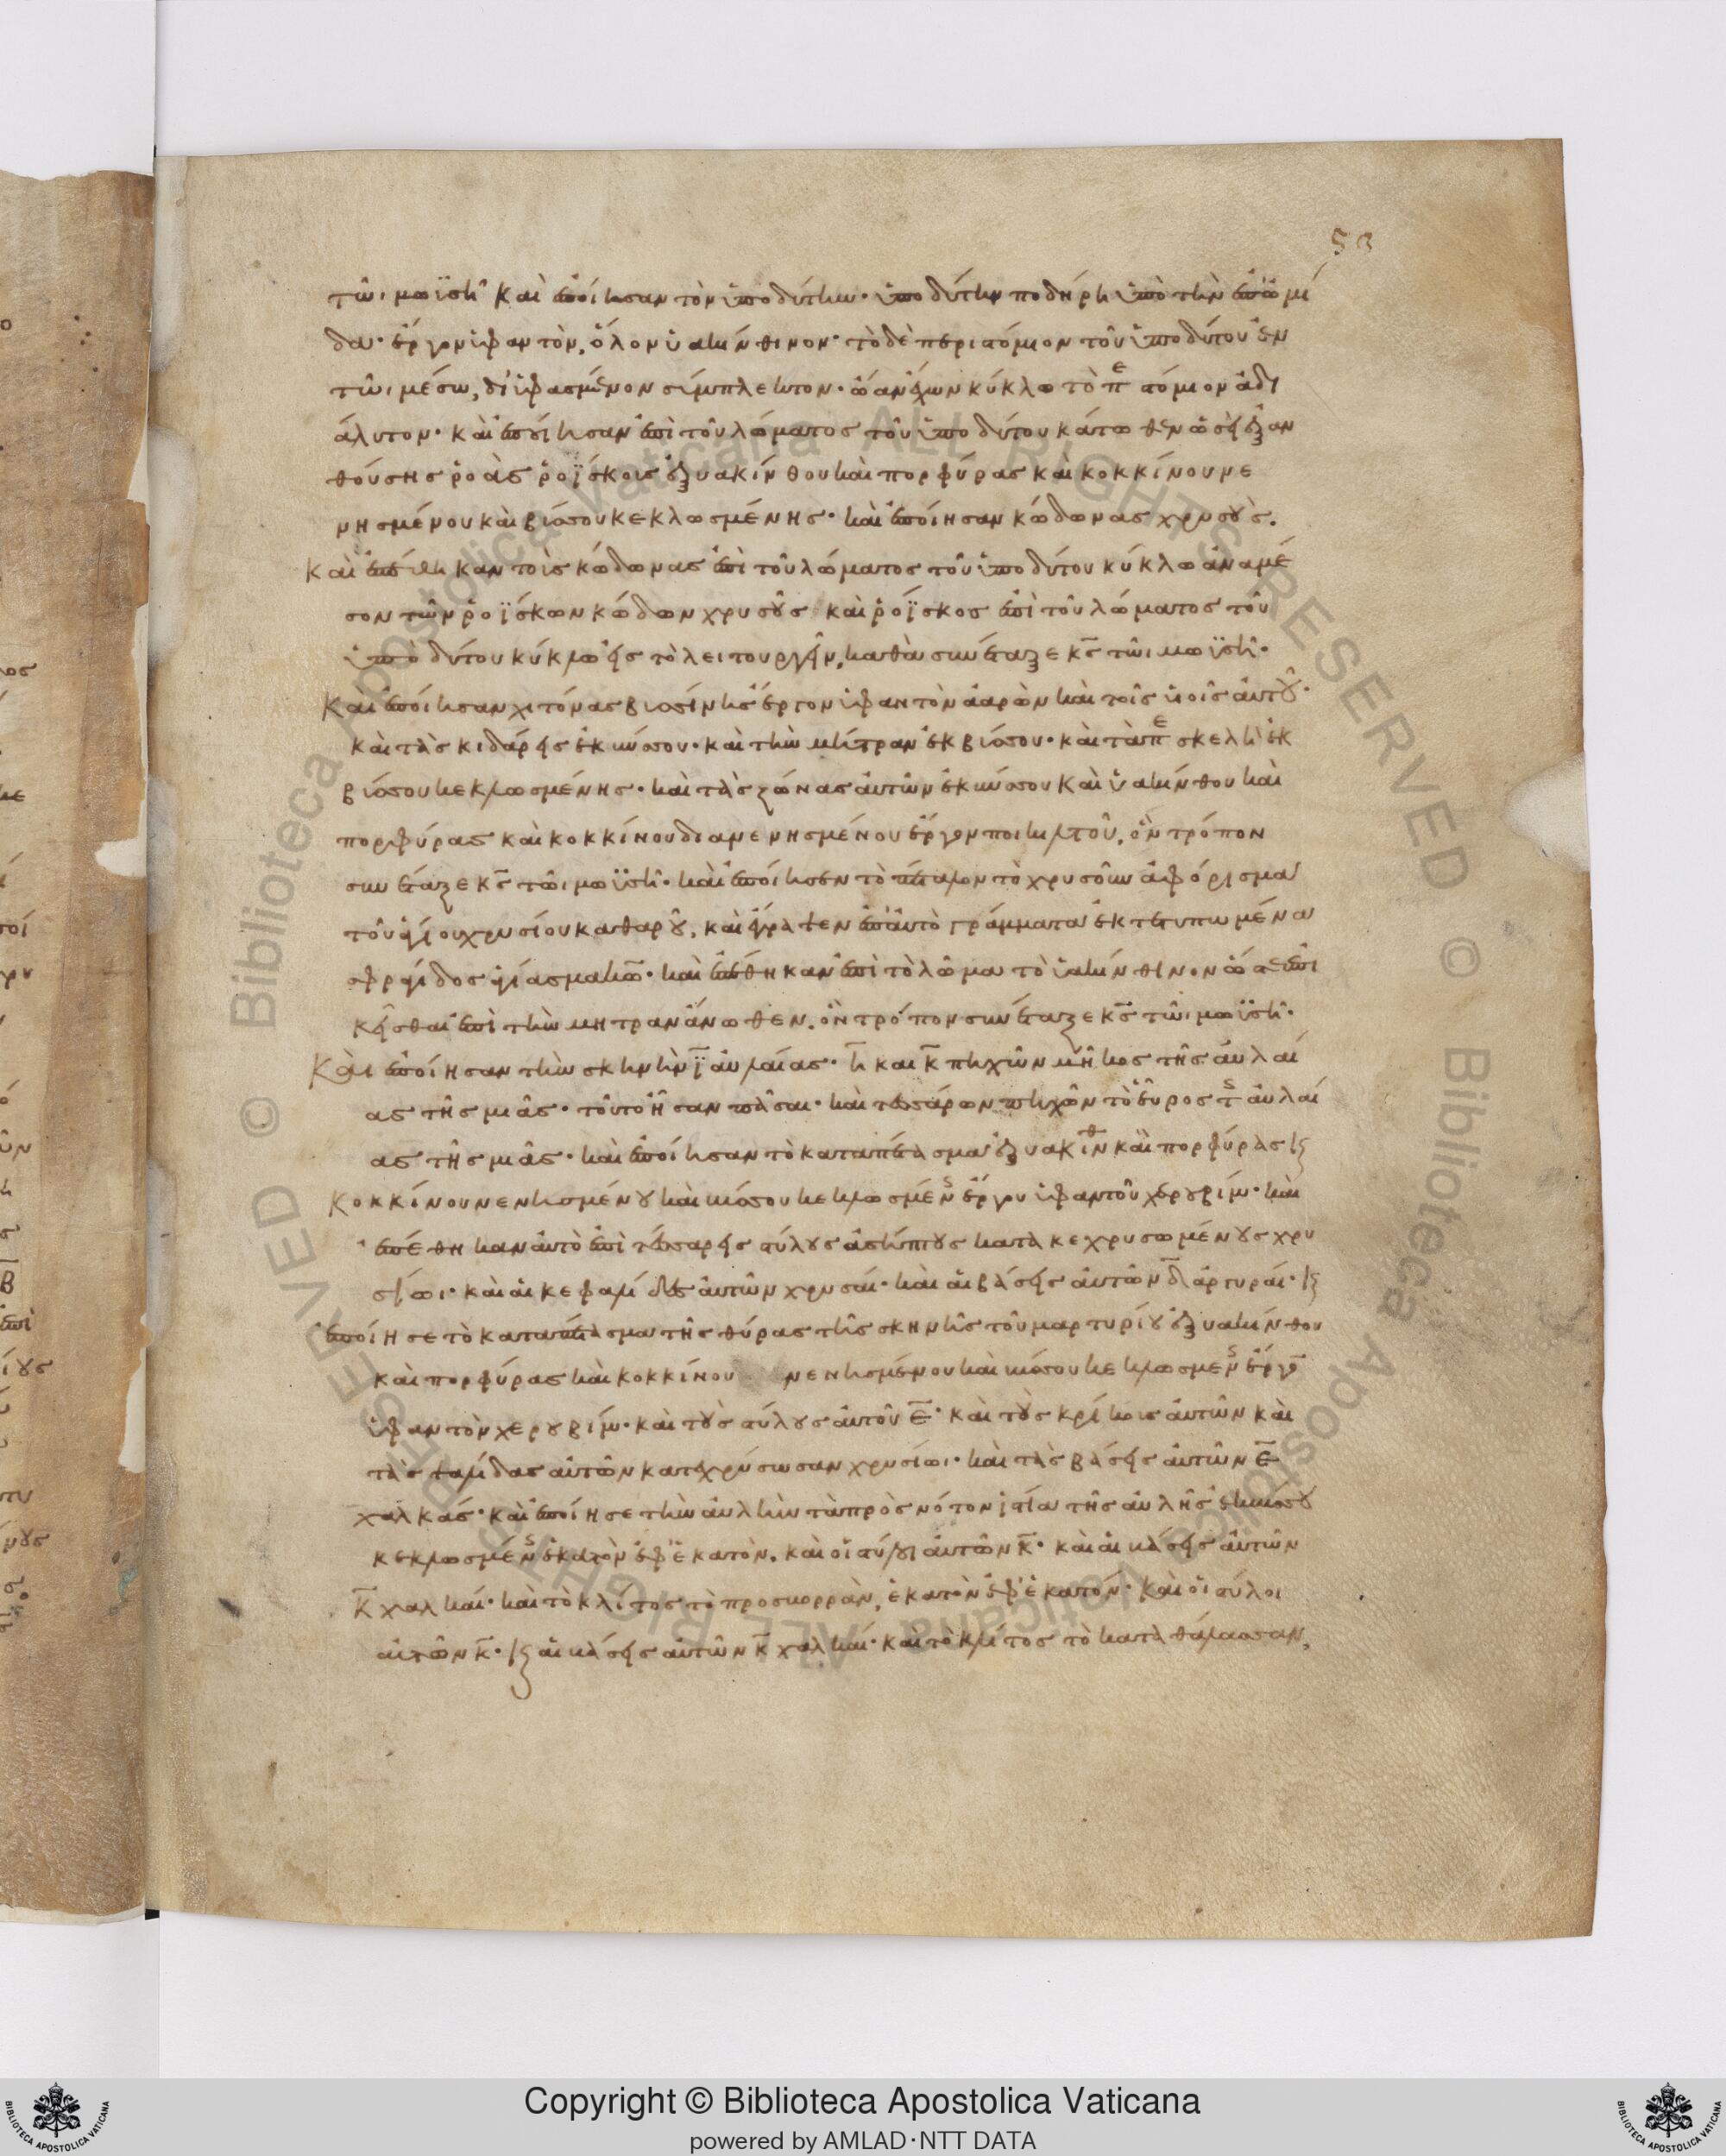 53
τῶι μωϊσῆ καὶ ἐποίησαν τὸν ὑποδύτην· ὑποδύτην ποδήρη ὑπὸ τὴν ἐπωμί
δα· ἔργον ὑφαντὸν, ὅλον ὑακίνθινον· τὸ δὲ περιστόμιον τοῦ ὑποδύτου ἐν
τῶι μέσω, διϋφασμένον σύμπλεκτον· ὤαν ἔχων κύκλω τὸ πε στόμιον ἀδι
άλυτον· καὶ ἐποίησαν ἐπὶ τοῦ λώματος τοῦ ὑποδύτου κάτωθεν ὡσεὶ ἐξαν
θούσης ρόας ροΐσκοις ἐξ υακίνθου καὶ πορφύρας καὶ κοκκίνου νε
νησμένου καὶ βύσσου κεκλωσμένης· καὶ ἐποίησαν κώδωνας χρυσοὺς.
Καὶ ἐπέθηκαν τοὺς κώδωνας ἐπὶ τοῦ λώματος τοῦ ὑποδύτου κύκλω ἀναμέ
σον τῶν ροΐσκων κώδων χρυσοῦς καὶ ροΐσκος ἐπὶ τοῦ λώματος τοῦ
ὑποδύτου κύκλω εἰς τὸ λειτουργεῖν, καθὰ συνέταξε κς τῶι μωϊσῆ·
Καὶ ἐποίησαν χιτόνας βυσσίνης ἔργον ὑφαντὸν ἀαρὼν καὶ τοῖς υἱοῖς αὐτοῦ·
καὶ τὰς κιδάρεις ἐκ βύσσου· καὶ τὴν μίτραν ἐκ βύσσου· καὶ τὰ πε σκελῆ ἐκ
βύσσου κεκλωσμένης· καὶ τὰς ζώνας αὐτῶν ἐκ βύσσου καὶ ὑακίνθου καὶ
πορφύρας καὶ κοκκίνου διανενησμένου ἔργον ποικιλτοῦ, ὃν τρόπον
συνέταξε κς τῶι μωϊσῆ· καὶ ἐποίησεν τὸ πέταλον τὸ χρυσοῦν ἀφόρισμα
τοῦ ἁγίου χρυσίου καθαροῦ, καὶ ἔγραψεν ἐπ αὐτὸ γράμματα ἐκτετυπωμένα
σφραγίδος ἁγίασμα κω· καὶ ἐπέθηκαν ἐπὶ τὸ λῶμα τὸ ὑακίνθινον ὥστε ἐπι
κεῖσθαι ἐπὶ τὴν μητραν ἄνωθεν. ὃν τρόπον συνέταξε κς τῶι μωϊσῆ·
Καὶ ἐποίησαν τὴν σκηνὴν ϊ αὐλαίας· η και κ πηχῶν μῆκος τῆς αὐλαί
ας τῆς μιᾶς· τοῦτο ἦσαν πᾶσαι· καὶ τεσσάρων πηχῶν τὸ εὖρος τ αὐλαί
ας τῆς μιᾶς· καὶ ἐποίησαν τὸ καταπέτασμα ἐξ υακινθ καὶ πορφύρας κ
κοκκίνου νενησμένου καὶ βύσσου κεκλωσμέν ἔργου ὑφαντοῦ χερουβίμ· καὶ
ἐπέθηκαν αὐτὸ ἐπὶ τέσσαρεις στύλους ἀσήπτους κατακεχρυσωμένους χρυ
σίωι· καὶ αἱ κεφαλίδες αὐτῶν χρυσαῖ· καὶ αἱ βάσεις αὐτῶν δ ἀργυραῖ· κ
ἐποίησε τὸ καταπέτασμα τῆς θύρας τῆς σκηνῆς τοῦ μαρτυρίου ἐξ υακίνθου
καὶ πορφύρας καὶ κοκκίνου νενησμένου καὶ βύσσου κεκλωσμεν ἔργο
ὑφαντὸν χερουβίμ· καὶ τοὺς στύλους αὐτοῦ ε· καὶ τοὺς κρίκους αὐτῶν καὶ
τὰς ψαλίδας αὐτῶν κατεχρύσωσαν χρυσίωι· καὶ τὰς βάσεις αὐτῶν ε
χαλκάς· καὶ ἐποίησε τὴν αὐλὴν τὰ πρὸς νότον ἱστία τῆς αὐλῆς ἐκ βύσσου
κεκλωσμέν ἑκατὸν ἐφ ἑκατὸν. καὶ οἱ στύλοι αὐτῶν κ· καὶ αἱ βάσεις αὐτῶν
κ χαλκαῖ· καὶ τὸ κλίτος τὸ προς βορρὰν, ἑκατὸν ἐφ ἑκατόν· καὶ οἱ στύλοι
αὐτῶν κ· κ αἱ βάσεις αὐτῶν κ χαλκαῖ· καὶ τὸ κλίτος τὸ κατὰ θάλασσαν,
© Biblioteca Apostolica Vaticana ALL RIGHTS RESERVED
© Biblioteca Apostolica Vaticana ALL RIGHTS RESERVED
Copyright © Biblioteca Apostolica Vaticana
powered by AMLAD·NTT DATA